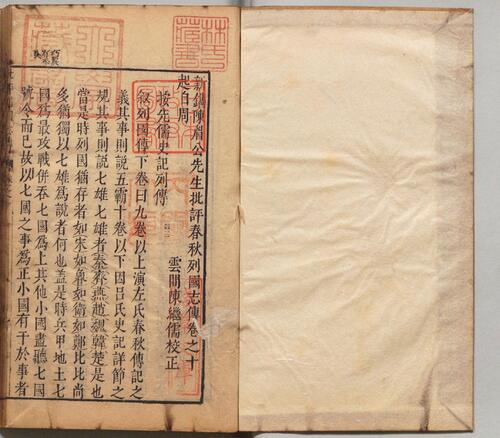 新鐫陳眉公先生批評春秋列國志傳卷之十
雲間陳繼儒校正
起自周
按先儒史記列傳
敘列國傳下卷曰九卷以上演左氏春秋傳記之
義其事則説五霸十卷以下因吕氏史記詳節之
規其事則説七雄七雄者秦齊燕趙魏韓楚是也
當是時列國猶存者如宋如魯如衛如鄭比比尚
多猶獨以七雄為說者何也盖是時兵甲地土七
國為最攻戰併吞七國為上其他小國盡聽七國
號令而已故以七國之事為正小國有干於事者
林氏
藏書